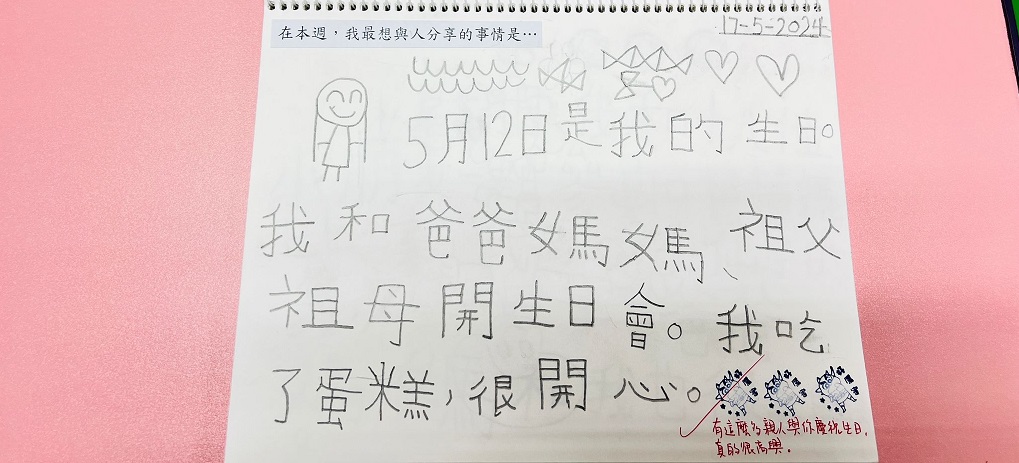 在本週，我最想與人分享的事情是…
17-5-2024
5月12日是我的生日。
我和爸爸媽媽、祖父
祖母開生日會。我吃
了蛋糕，很開心。
有這麼多親人與你慶祝生日，
真的很高興。